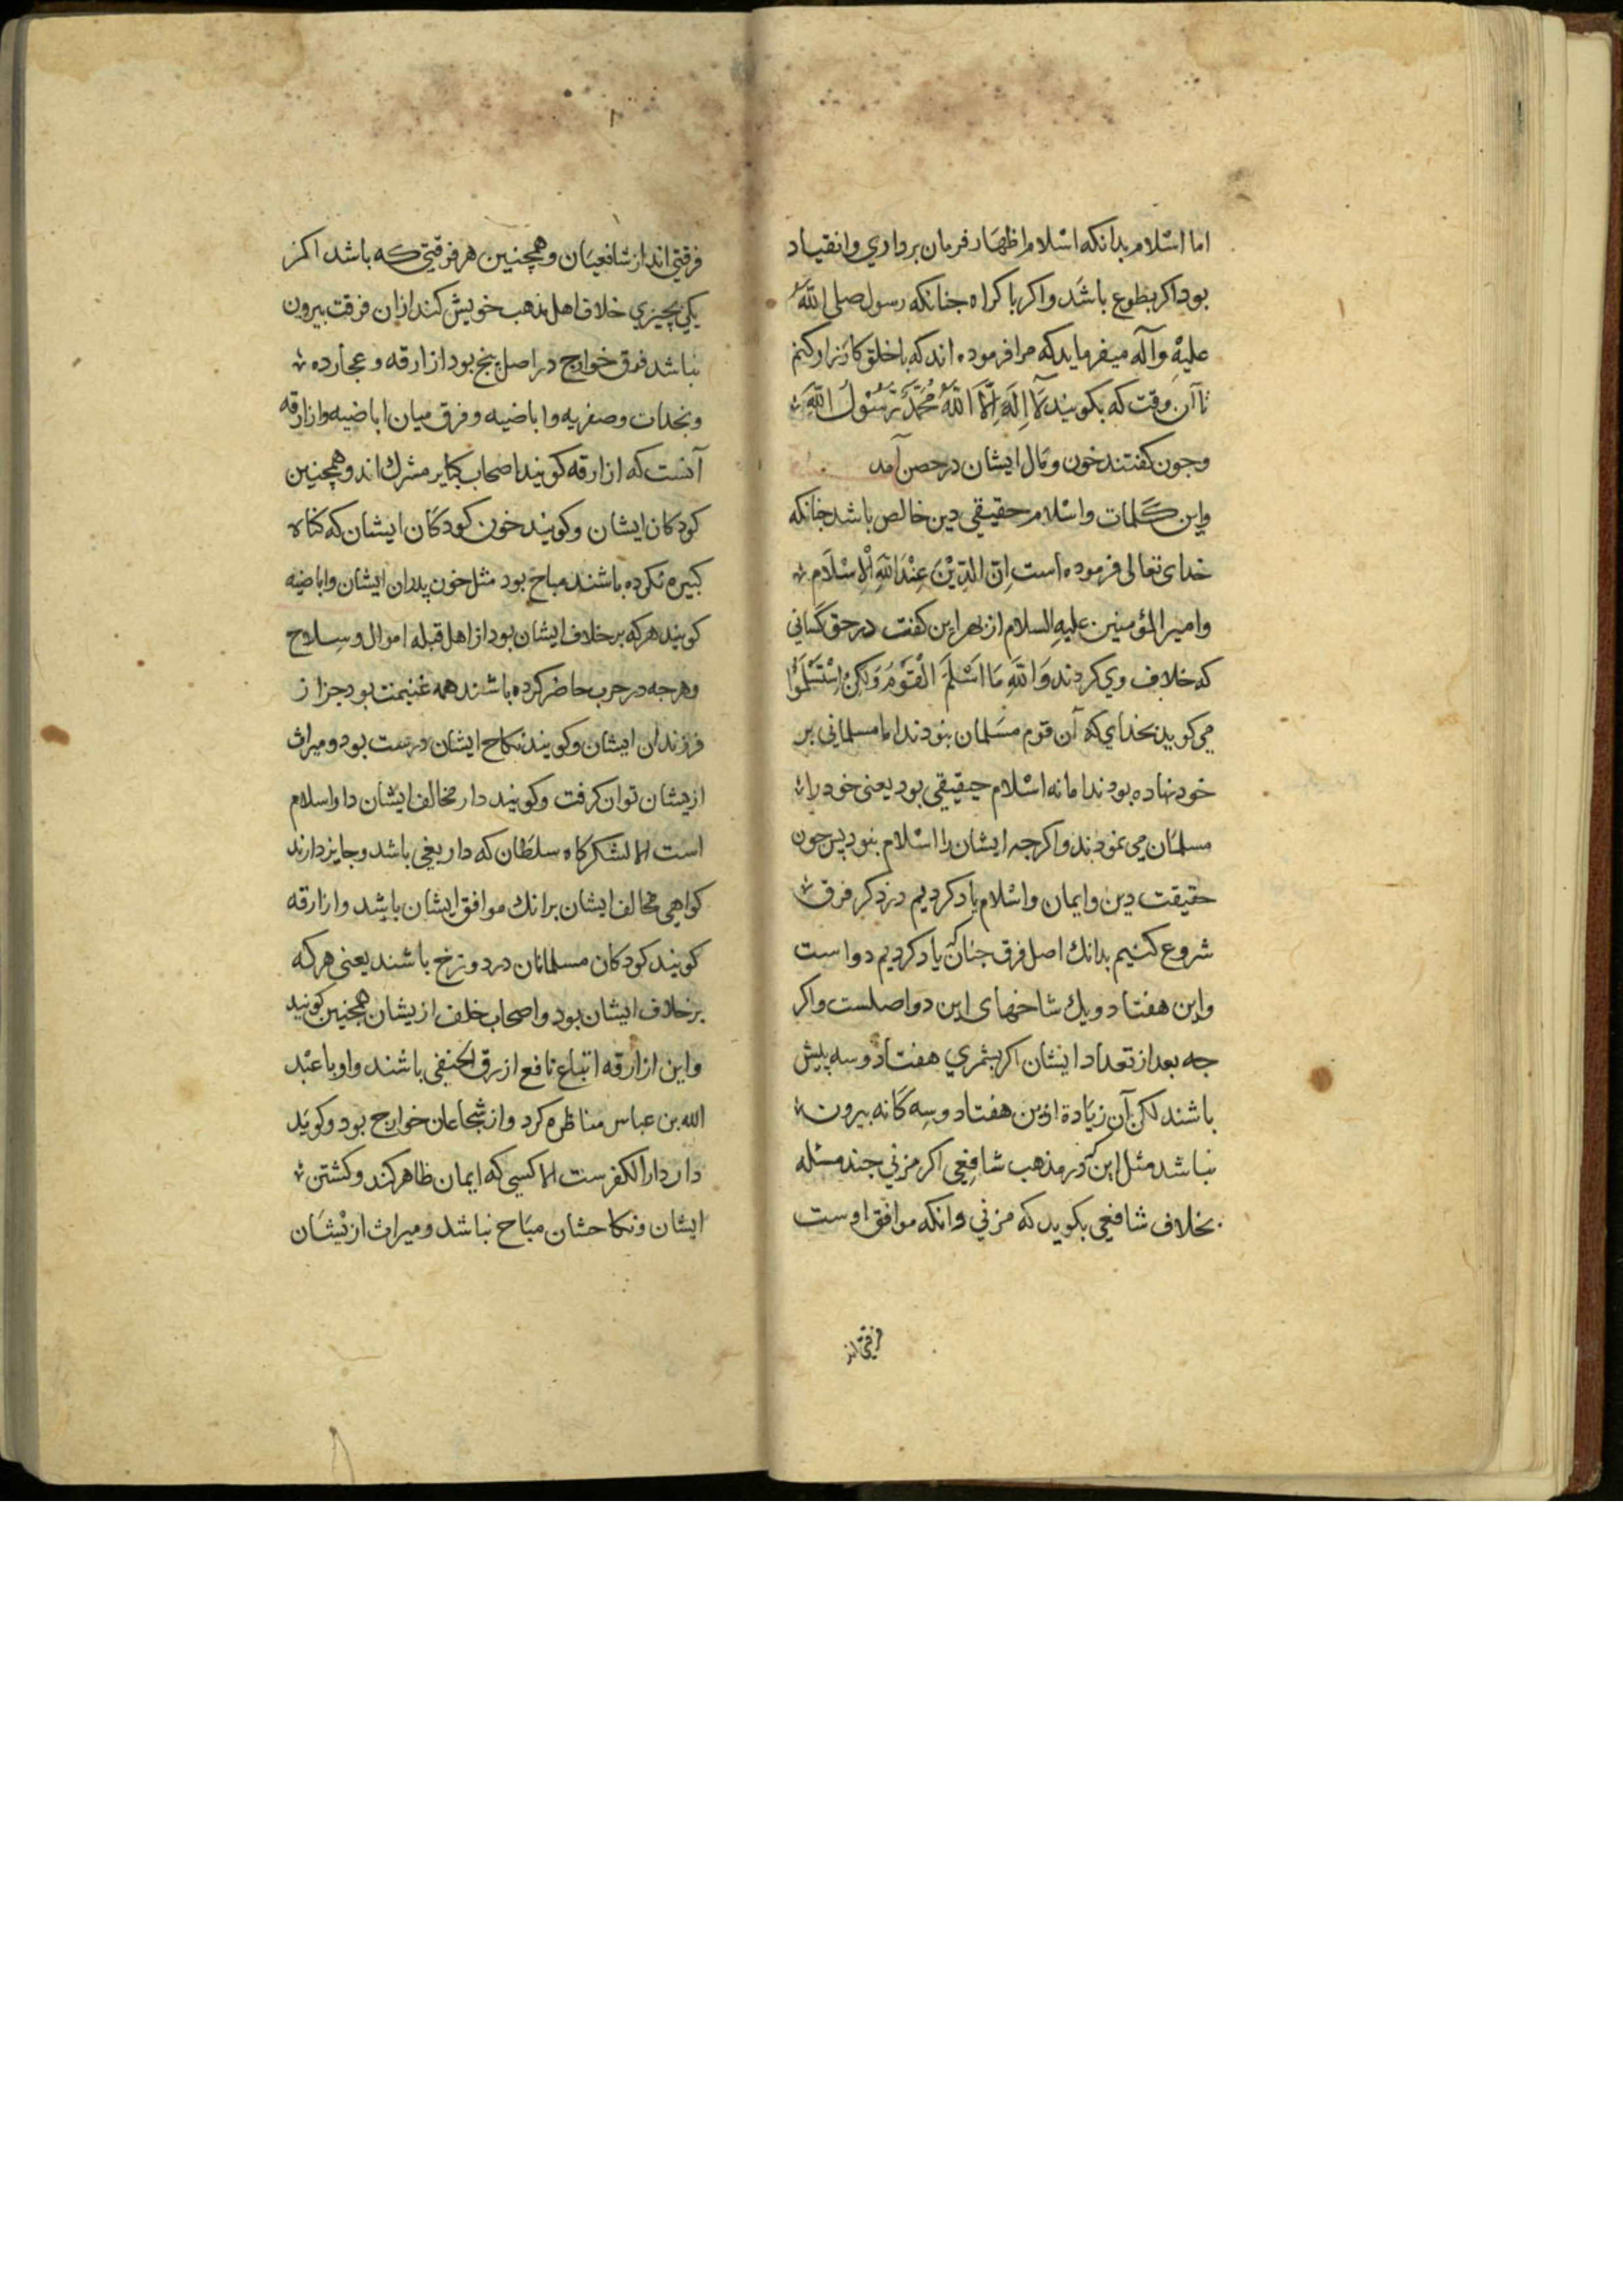 اما اسْلام بدانکه اسْلام اظهار فرمان برداري وانقیاد
بود اکر بطوع باشد واکر باکراه جنانکه رسول صلی اللّٰه
علیْهِ وآله میفرماید که مرا فرموده اند که باخلق کارزار کنم
تا آن وقت که بکویند لَآ اِلَهَ اِلَّا اللَّهُ مُحَمَّدٌ رَسُوْلُ اللَّهِ
وجون کفتند خون ومال ایشان در حصن آمد
واین کلمات واسْلام حقیقی دین خالص باشد جنانکه
خدای تعالی فرموده است اِنّ الدِّیْنَ عِنْدَ اللَّهِ الْاِسْلَام
وامیر المؤمنین علیهِ السلام از بهر این کفت در حق کسانی
که خلاف وي کردند وَاللَّهِ مَا اَسْلَمَ الْقَوْمُ وَلَكِنْ اِسْتَسْلَمُوْا
می کوید بخدای که آن قوم مسَلمان نبودند اما مسلمانی بر
خود نهاده بودند اما نه اسْلام حقیقی بود یعنی خود را
مسلمان می نمودند واکرجه ایشان را اسْلام نبود پس جون
حقیقت دین وایمان واسْلام یاد کردیم در ذکر فرق
شروع کنیم بدانك اصل فرق جنان که یاد کردیم دو است
واین هفتاد ویك شاخهای این دو اصلست واکر
جه بعد از تعداد ایشان اکر بشمري هفتاد وسه بیش
باشند لکن آن زیادة ازین هفتاد وسه کانه بیرون
نباشد مثل این که در مذهب شافعی اکر مزنی جند مسئله
بخلاف شافعی بکوید که مزنی وانکه موافق اوست
فرقتی اند
فرقتي اند از شافعیان وهمچنین هر فرقتي که باشد اکر
یکي بچیزي خلاف اهل مذهب خویش کند ازان فرقت بیرون
نباشد فرق خوارج در اصل پنج بود ازارقه وعجارده
ونجدات وصفریه واباضیه وفرق میان اباضیه وازارقه
آنست که ازارقه کویند اصحاب کبایر مشرك اند وهمچنین
کودکان ایشان وکویند خون کودکان ایشان که کناه
کبیره نکرده باشند مباح بود مثل خون پدران ایشان واباضیه
کویند هرکه بر خلاف ایشان بود از اهل قبله اموال وسلاح
وهرجه در حرب حاضر کرده باشند همه غنیمت بود جز از
فرزندان ایشان وکویند نکاح ایشان درست بود ومیراث
ازیشان توان کرفت وکویند دار مخالف ایشان دار اسلام
است الا لشکرکاه سلطان که دار بغی باشد وجایز دارند
کواهی مخالف ایشان برانك موافق ایشان باشد وازارقه
کویند کودکان مسلمانان در دوزخ باشند یعنی هرکه
برخلاف ایشان بود واصحاب خلف ازیشان همچنین کویند
واین ازارقه اتباع نافع ازرق الحنفی باشند واو با عبْد
الله بن عباس مناظره کرد واز شجاعان خوارج بود وکویَد
دار دار الکفرست الا کسی که ایمان ظاهر کند وکشتن
ایشان ونکاحشان مبَاح نباشد ومیراث ازیْشَان